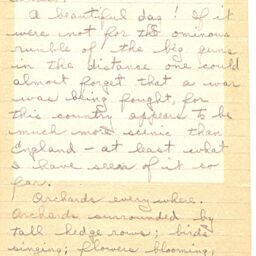 A beautiful day! If it
were not for the ominous
rumble of the big guns
in the distance one could
almost forget that a war
was being fought, for
this country appears to be
much more scenic than
England - at least what
I have seen of it so
far.
Orchards everywhere.
Orchards surrounded by
tall hedge rows; birds
singing; flowers blooming;